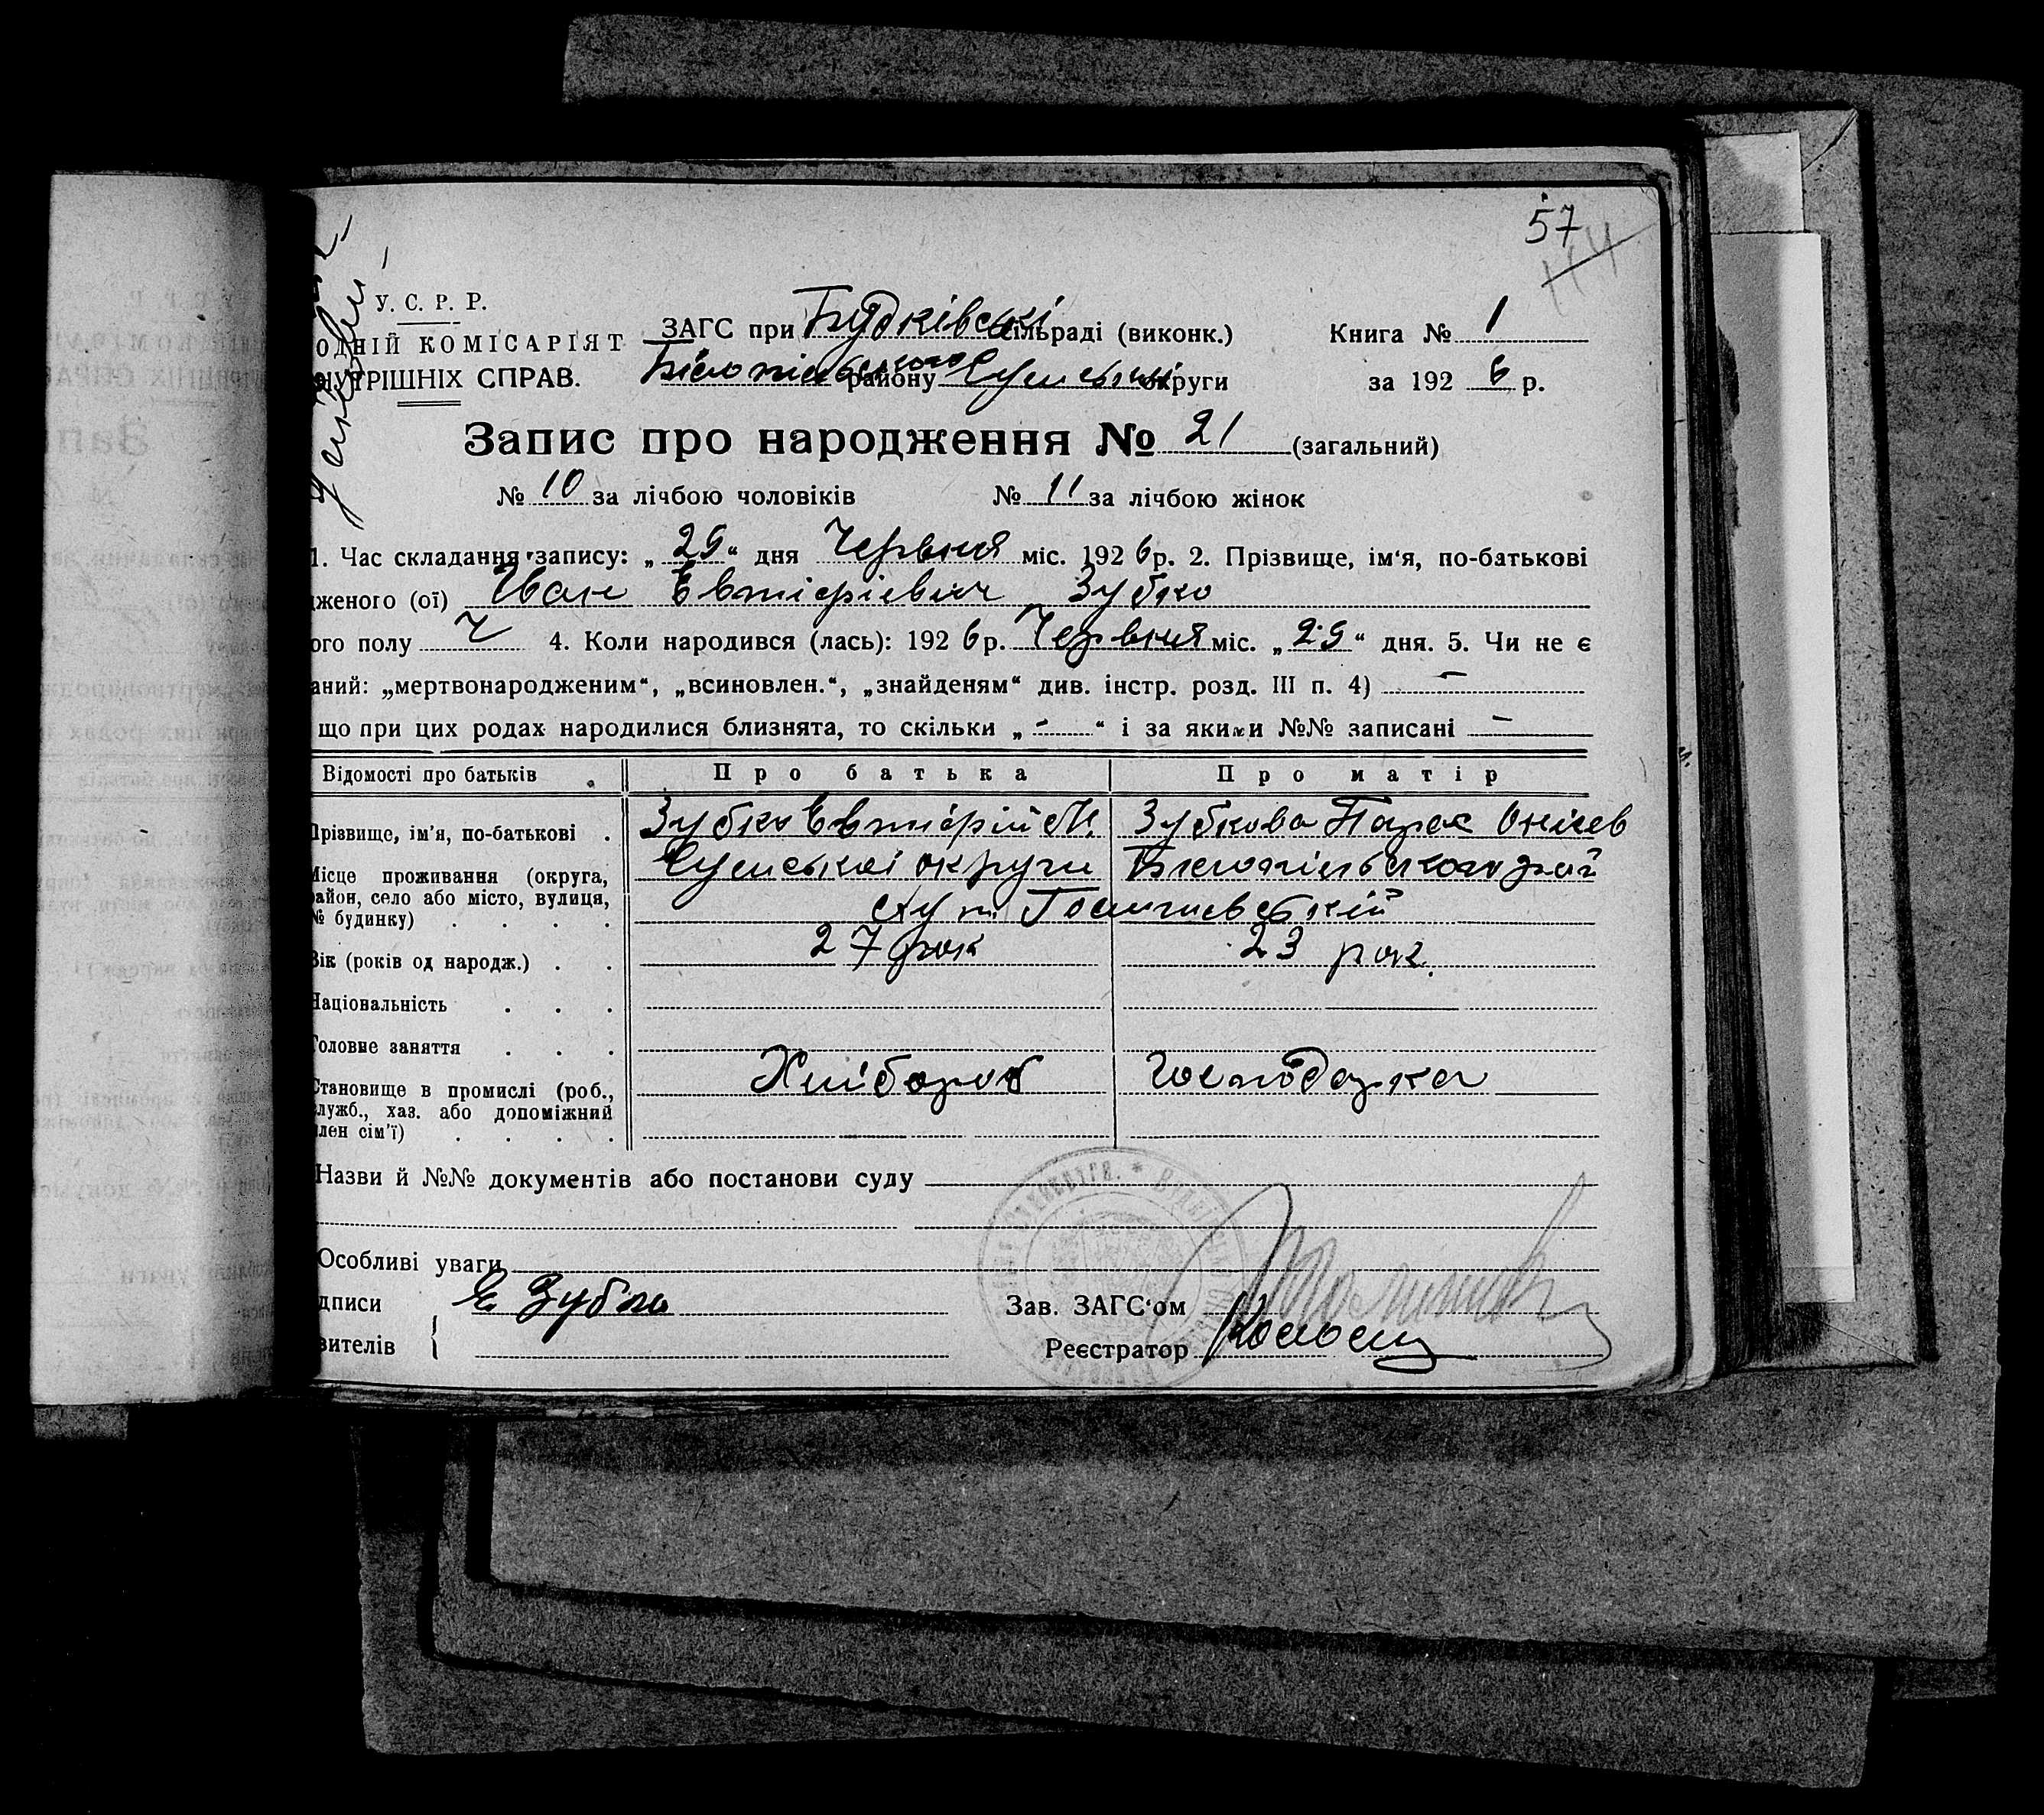 57
114
У. С. Р. Р.
ОДНІЙ КОМІСАРІЯТ
НУТРІШНІХ СПРАВ.
ЗАГС при Будківські сільраді (виконк.)
Книга № 1
району Сумської округи
за 192 6 р.
Запис про народження № 21 (загальний)
№ 10 за лічбою чоловіків № 11 за лічбою жінок
1. Час складання запису: „ 29 “ дня Червня міс. 192 6 р. 2. Прізвище, ім‘я, по-батькові
дженого (ої) Иван Евтіфіевич Зубко
ого полу Ч 4. Коли народився (лась): 192 6 р. Червня міс. „ 29 “ дня. 5. Чи не є
аний: „мертвонародженим“, „всиновлен.“, „знайденям“ див. інстр. розд. III п. 4) —
що при цих родах народилися близнята, то скільки „ - “ і за якими №№ записані —
Відомості про батьків Про батька Про матір
Прізвище, ім'я, по-батькові . Зубко Евтіфій М. Зубкова Парас
Місце проживання (округа, Сумської округи Білопільського рай
район, село або місто, вулиця,
№ будинку) . . . . хут.
Вік (років од народж.) . . 27 рок 23 рок.
Національність . . .
Головне заняття . . .
Становище в промислі (роб., Хлібороб Господарка
служб., хаз. або допоміжний
член сім'ї) . . . .
Назви й №№ документів або постанови суду
Особливі уваги
дписи Е Зубко Зав. ЗАГС‘ом
вителів { Реєстратор